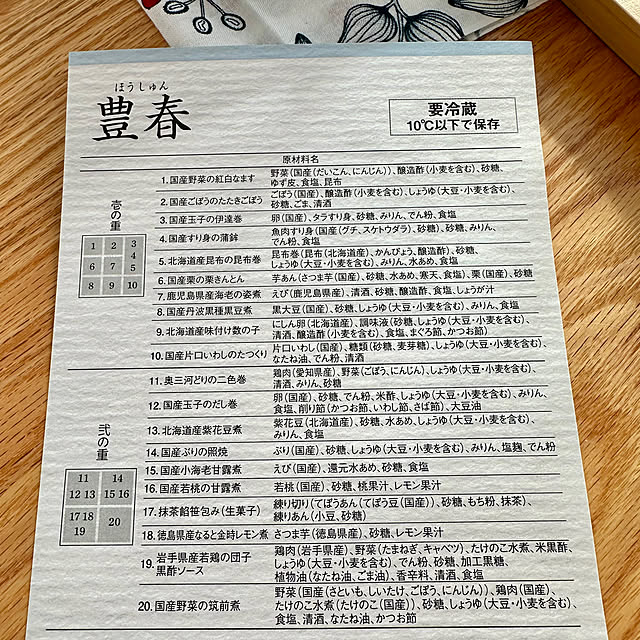 ほうしゅん
豊春
要冷蔵
10℃以下で保存
原材料名
壱の重
1 2 3
4
6 7 5
8 9 10
1. 国産野菜の紅白なます 野菜(国産(だいこん、にんじん))、醸造酢(小麦を含む)、砂糖、
ゆず皮、食塩、昆布
2. 国産ごぼうのたたきごぼう ごぼう(国産)、醸造酢(小麦を含む)、しょうゆ(大豆・小麦を含む)、
砂糖、ごま、清酒
3. 国産玉子の伊達巻 卵(国産)、タラすり身、砂糖、みりん、でん粉、食塩
4. 国産すり身の蒲鉾 魚肉すり身(国産(グチ、スケトウダラ)、砂糖)、砂糖、みりん、
でん粉、食塩
5. 北海道産昆布の昆布巻 昆布巻(昆布(北海道産)、かんぴょう、醸造酢)、砂糖、
しょうゆ(大豆・小麦を含む)、みりん、水あめ、食塩
6. 国産栗の栗きんとん 芋あん(さつま芋(国産)、砂糖、水あめ、寒天、食塩)、栗(国産)、砂糖
7. 鹿児島県産海老の姿煮 えび(鹿児島県産)、清酒、砂糖、醸造酢、食塩、しょうが汁
8. 国産丹波黒種黒豆煮 黒大豆(国産)、砂糖、しょうゆ(大豆・小麦を含む)、みりん、食塩
9. 北海道産味付け数の子 にしん卵(北海道産)、調味液(砂糖、しょうゆ(大豆・小麦を含む)、
清酒、醸造酢(小麦を含む)、食塩、まぐろ節、かつお節)
10. 国産片口いわしのたつくり 片口いわし(国産)、糖類(砂糖、麦芽糖)、しょうゆ(大豆・小麦を含む)、
なたね油、でん粉、清酒
弐の重
11 14
12 13 15 16
17 18 20
19
11. 奥三河どりの二色巻 鶏肉(愛知県産)、野菜(ごぼう、にんじん)、しょうゆ(大豆・小麦を含む)、
清酒、みりん、砂糖
12. 国産玉子のだし巻 卵(国産)、砂糖、でん粉、米酢、しょうゆ(大豆・小麦を含む)、みりん、
食塩、削り節(かつお節、いわし節、さば節)、大豆油
13. 北海道産紫花豆煮 紫花豆(北海道産)、砂糖、水あめ、しょうゆ(大豆・小麦を含む)、
みりん、食塩
14. 国産ぶりの照焼 ぶり(国産)、砂糖、しょうゆ(大豆・小麦を含む)、みりん、塩麹、でん粉
15. 国産小海老甘露煮 えび(国産)、還元水あめ、砂糖、食塩
16. 国産若桃の甘露煮 若桃(国産)、砂糖、桃果汁、レモン果汁
17. 抹茶餡笹包み(生菓子) 練り切り(てぼうあん(てぼう豆(国産))、砂糖、もち粉、抹茶)、
練りあん(小豆、砂糖)
18. 徳島県産なると金時レモン煮 さつま芋(徳島県産)、砂糖、レモン果汁
19. 岩手県産若鶏の団子 鶏肉(岩手県産)、野菜(たまねぎ、キャベツ)、たけのこ水煮、米黒酢、
黒酢ソース しょうゆ(大豆・小麦を含む)、でん粉、砂糖、加工黒糖、
植物油(なたね油、ごま油)、香辛料、清酒、食塩
20. 国産野菜の筑前煮 野菜(国産(さといも、しいたけ、ごぼう、にんじん))、鶏肉(国産)、
たけのこ水煮(たけのこ(国産))、砂糖、しょうゆ(大豆・小麦を含む)、
食塩、清酒、なたね油、かつお節